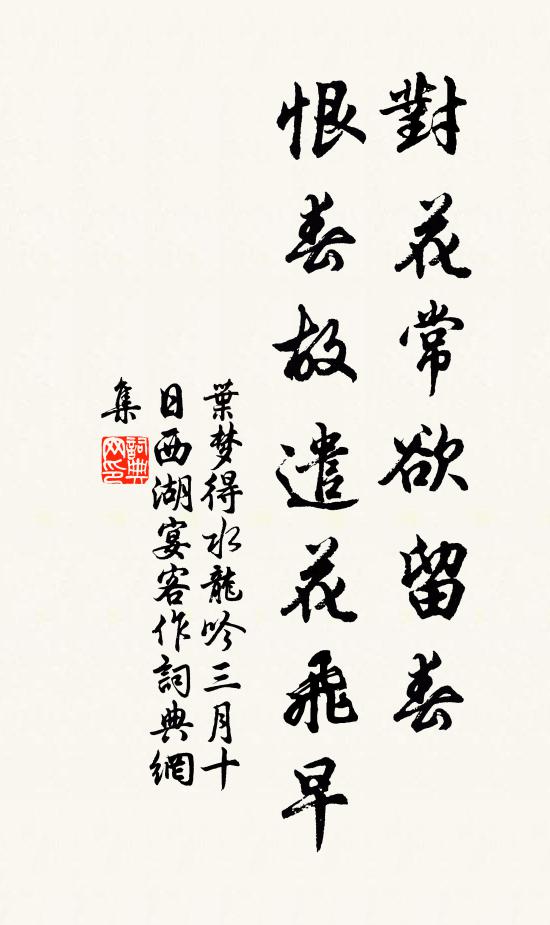 對花常欲留春
恨春故遣花飛早
葉梦得水龍吟三月十
日西湖宴客作詞典網
集
詞典
网印